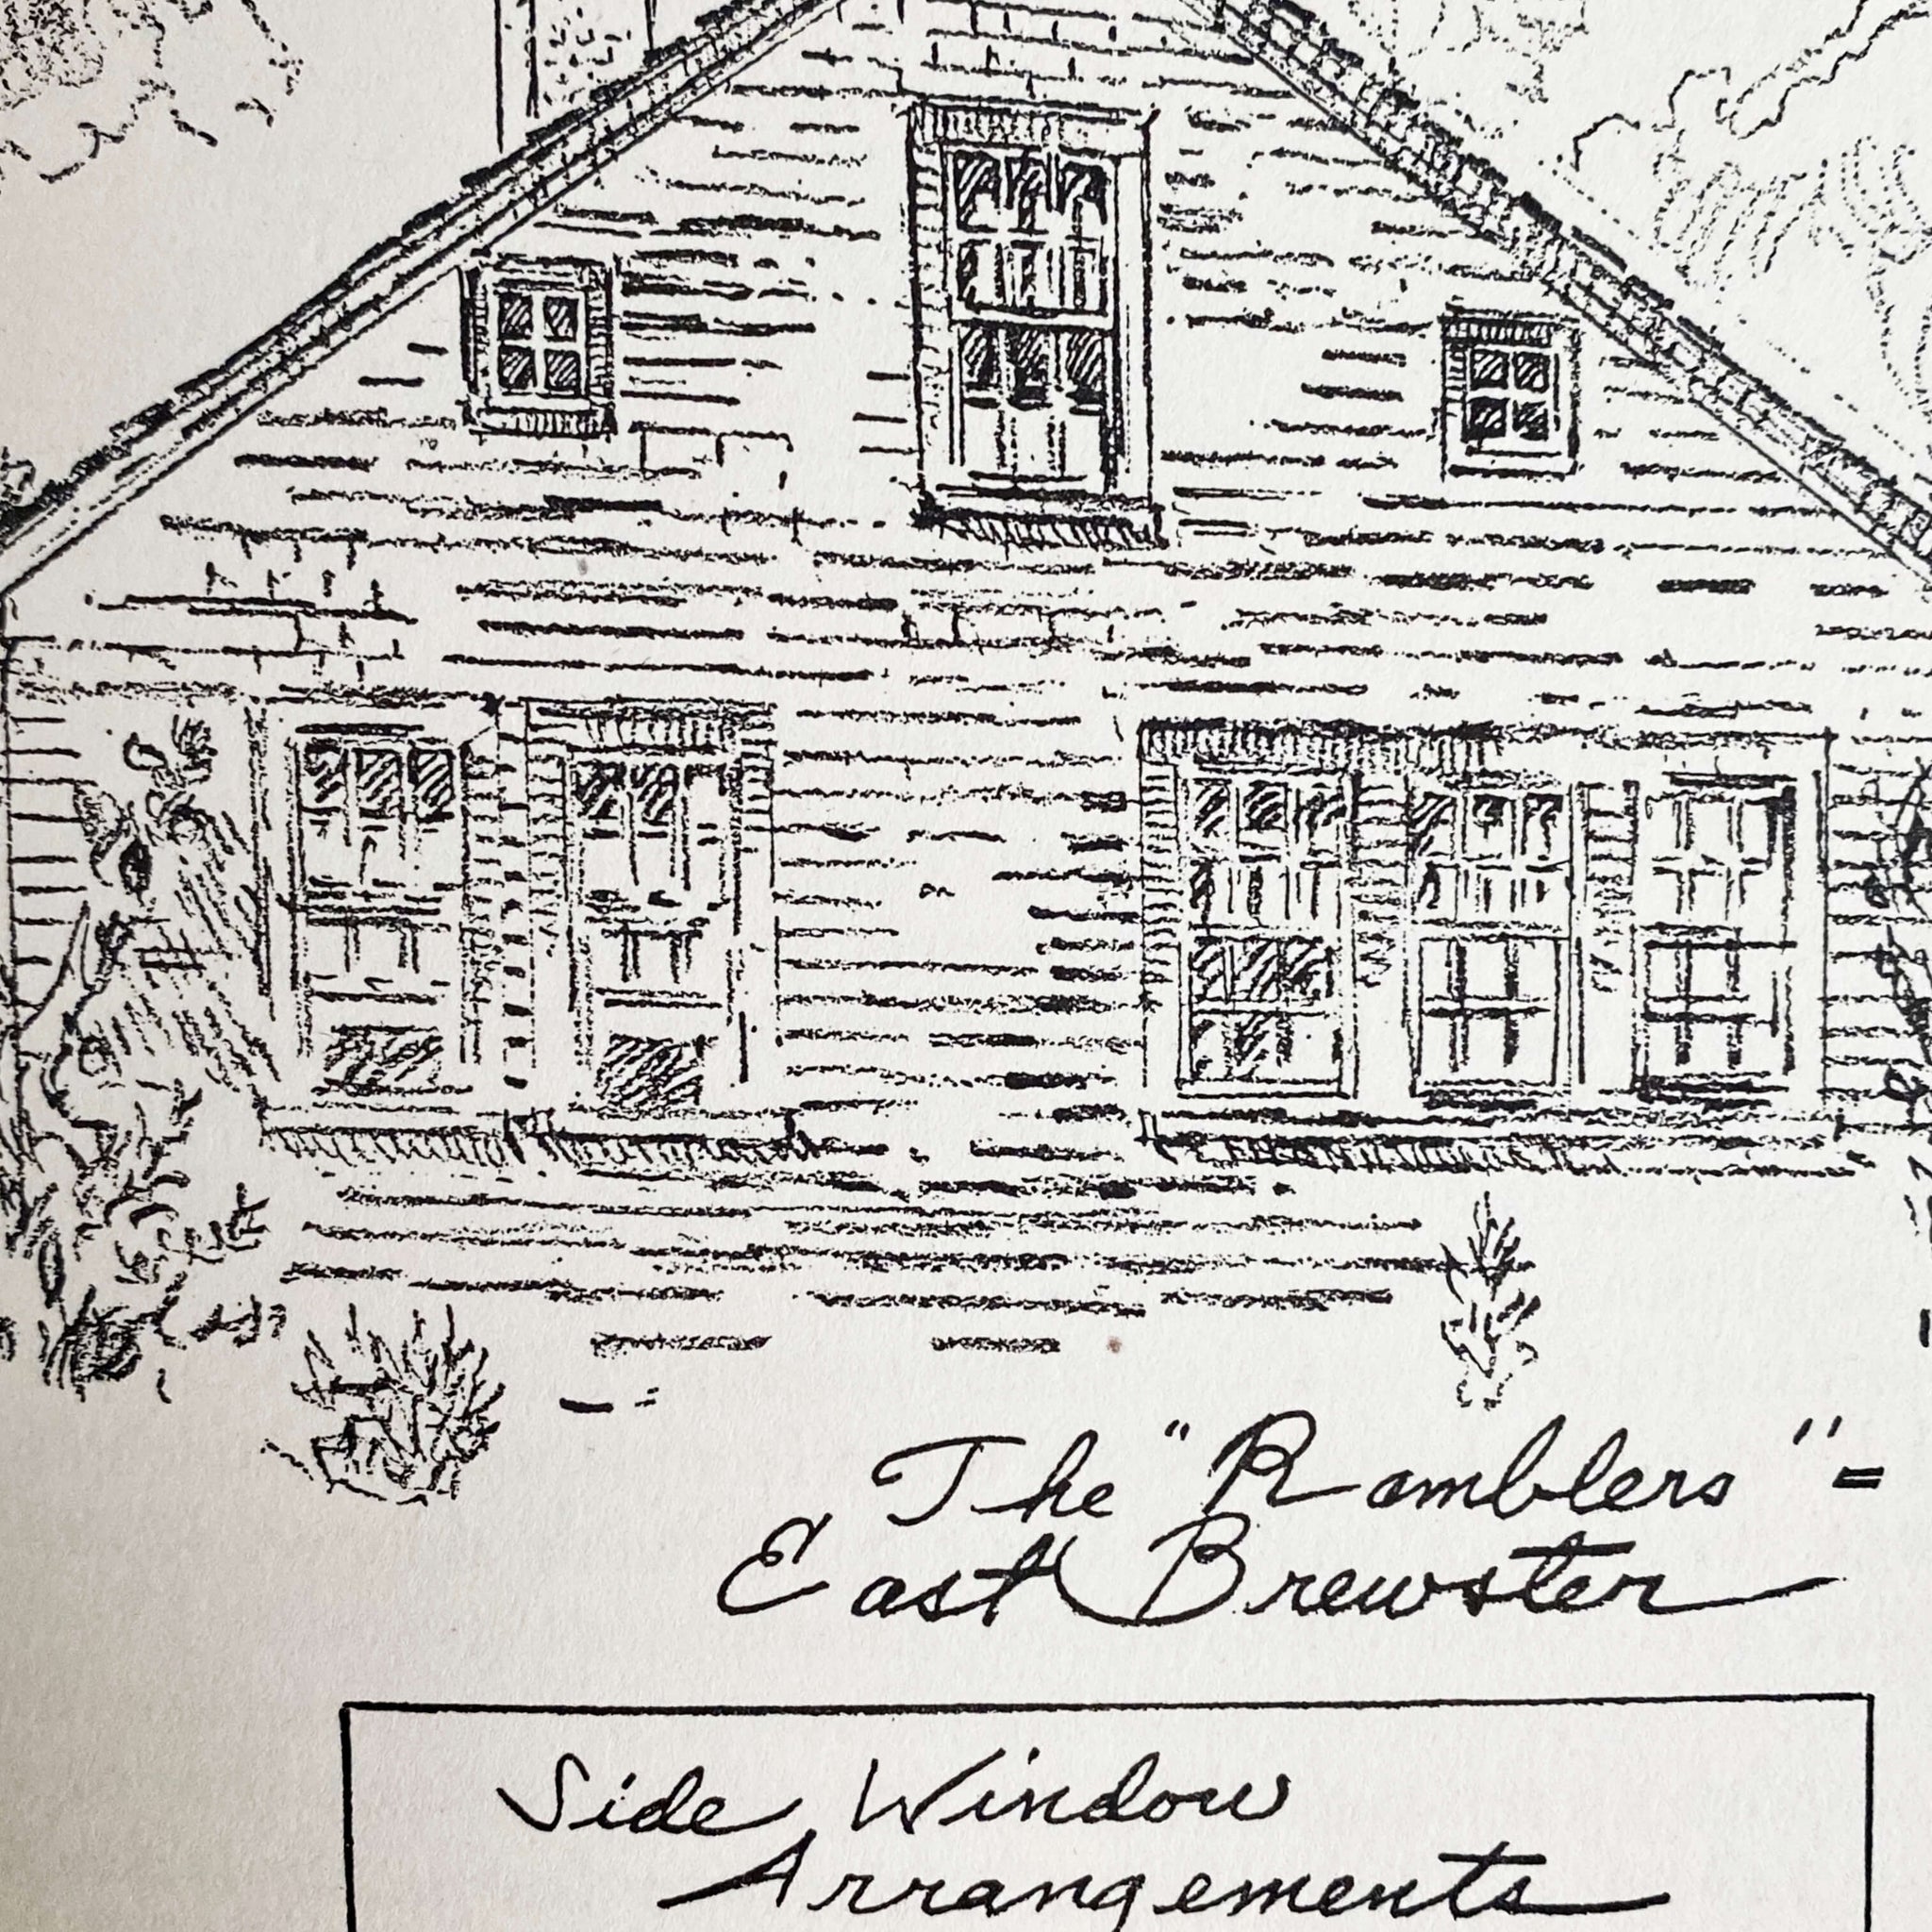 The "Ramblers" =
East Brewster
Side Window
Arrangements